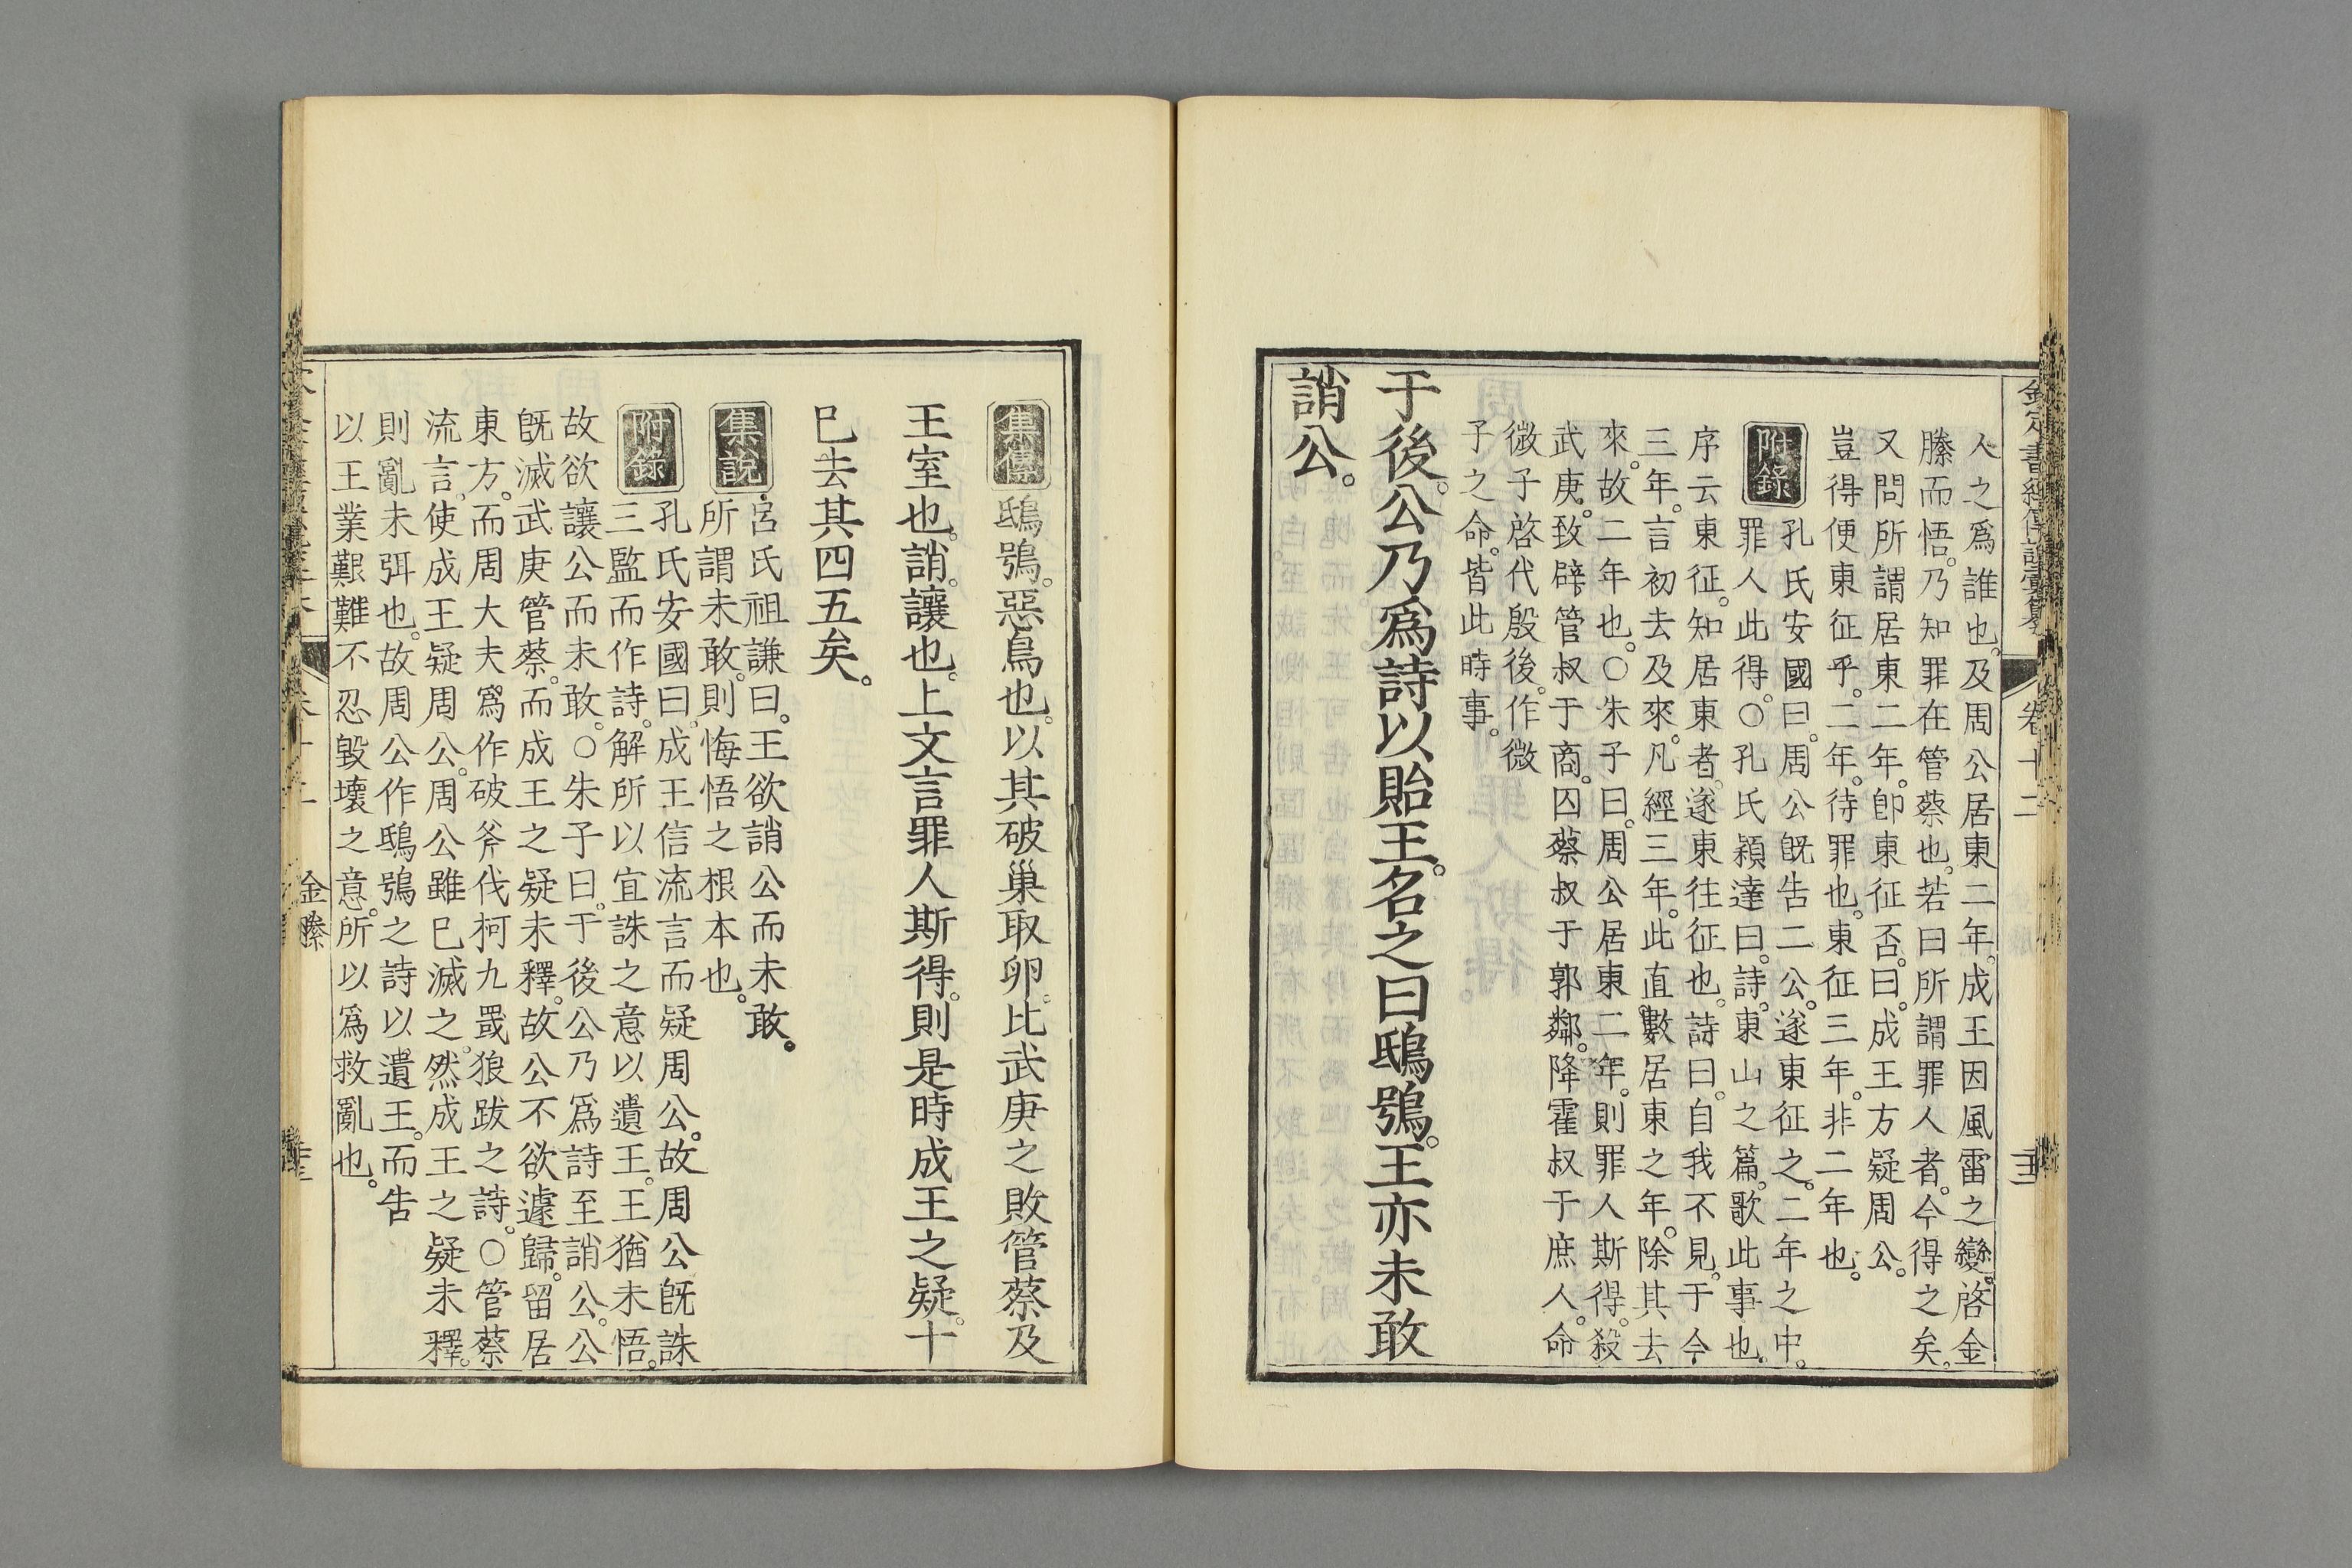 人之爲誰也。及周公居東二年。成王因風雷之變。啓金
縢而悟。乃知罪在管蔡也。若曰所謂罪人者。今得之矣。
又問所謂居東二年。卽東征否。曰。成王方疑周公。
豈得便東征乎。二年。待罪也。東征三年。非二年也。
附錄
孔氏安國曰。周公旣告二公。遂東征之。二年之中。
罪人此得。○孔氏穎達曰。詩。東山之篇。歌此事也。
序云東征。知居東者。遂東往征也。詩曰。自我不見。于今
三年。言初去及來。凡經三年。此直數居東之年。除其去
來。故二年也。○朱子曰。周公居東二年。則罪人斯得。殺
武庚。致辟管叔于商。囚蔡叔于郭鄰。降霍叔于庶人。命
微子啓代殷後。作微
子之命。皆此時事。
于後。公乃爲詩以貽王。名之曰鴟鴞。王亦未敢
誚公。
集傳
鴟鴞。惡鳥也。以其破巢取卵。比武庚之敗管蔡及
王室也。誚。讓也。上文言罪人斯得。則是時成王之疑。十
已去其四五矣。
集說
呂氏祖謙曰。王欲誚公而未敢。
所謂未敢。則悔悟之根本也。
附錄
孔氏安國曰。成王信流言而疑周公。故周公旣誅
三監而作詩。解所以宜誅之意以遺王。王猶未悟。
故欲讓公而未敢。○朱子曰。于後公乃爲詩至誚公。公
旣滅武庚管蔡。而成王之疑未釋。故公不欲遽歸。留居
東方。而周大夫爲作破斧伐柯九罭狼跋之詩。○管蔡
流言。使成王疑周公。周公雖已滅之。然成王之疑未釋。
則亂未弭也。故周公作鴟鴞之詩以遺王。而告
以王業艱難不忍毀壞之意。所以爲救亂也。
金縢